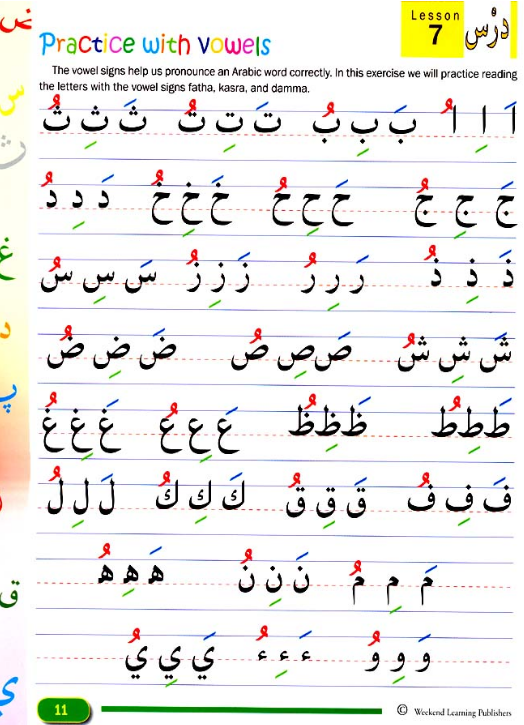 Lesson
7
دَرْس
Practice with vowels
The vowel signs help us pronounce an Arabic word correctly. In this exercise we will practice reading
the letters with the vowel signs fatha, kasra, and damma.
اَ اِ اُ بَ بِ بُ تَ تِ تُ ثَ ثِ ثُ
جَ جِ جُ حَ حِ حُ خَ خِ خُ دَ دِ دُ
ذَ ذِ ذُ رَ رِ رُ زَ زِ زُ سَ سِ سُ
شَ شِ شُ صَ صِ صُ ضَ ضِ ضُ
طَ طِ طُ ظَ ظِ ظُ عَ عِ عُ غَ غِ غُ
فَ فِ فُ قَ قِ قُ كَ كِ كُ لَ لِ لُ
مَ مِ مُ نَ نِ نُ هَ هِ هُ
وَ وِ وُ ءَ ءِ ءُ يَ يِ يُ
11
© Weekend Learning Publishers